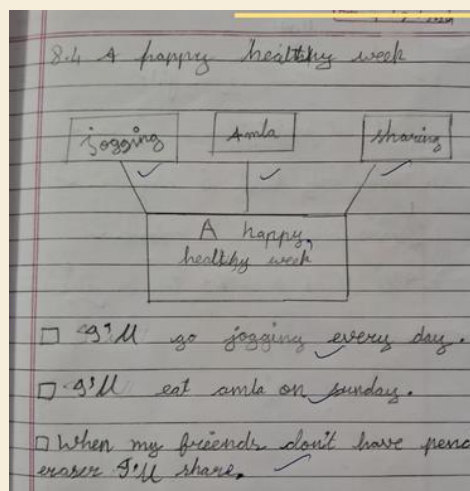 8.4 A happy healthy week
jogging Amla sharing
A happy,
healthy week
I'll go jogging every day.
I'll eat amla on sunday.
When my friends don't have
eraser I'll share.